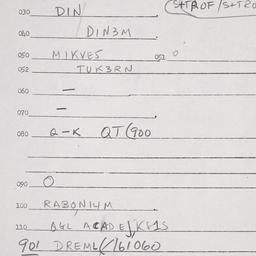 030 DIN S+TROF/S+TRO
040 DIN3M
050 MIKVES 051 0
052 TUK3RN
060 —
070 —
080 Q-K QT(900
090 O
100 RABONI4M
110 AGL ACADE
901 DREML